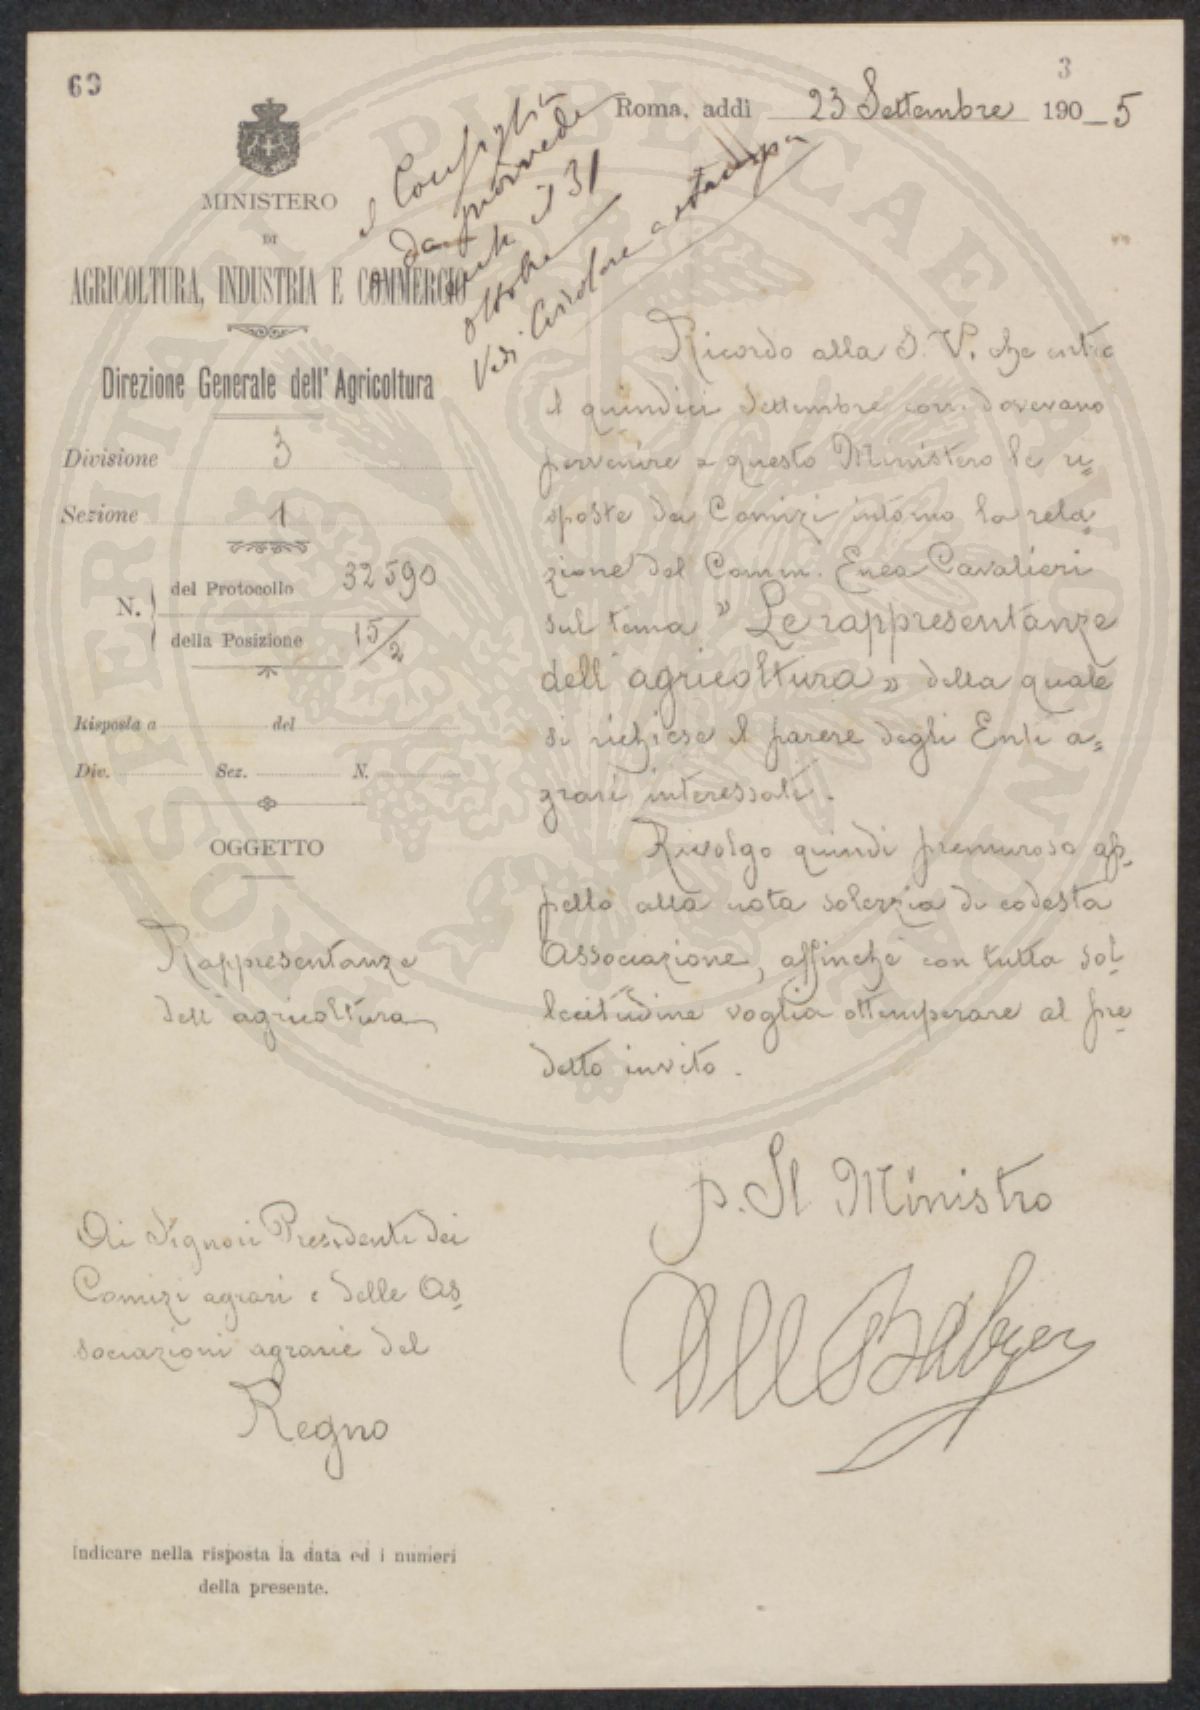 63
3
Roma, addì 23 Settembre 190_5
MINISTERO
DI
AGRICOLTURA, INDUSTRIA E COMMERCIO
Direzione Generale dell'Agricoltura
Divisione 3
Sezione 1
N. del Protocollo 32590
della Posizione 15/2
Risposta a del
Div. Sez. N.
OGGETTO
Rappresentanze
dell'agricoltura
il Consiglio
da provvedere
il 31
ottobre
Vedi Circolare a stampa
Ricordo alla S. V. che entro
il quindici Settembre corr. dovevano
pervenire a questo Ministero le ri=
sposte dei Comizi intorno la rela=
zione del Comm. Enea Cavalieri
sul tema "Le rappresentanze
dell'agricoltura" della quale
si richiese il parere degli Enti a=
grari interessati.
Rivolgo quindi premuroso ap=
pello alla nota solerzia di codesta
Associazione, affinché con tutta sol=
lecitudine voglia ottemperare al pre=
detto invito.
p. Il Ministro
Ai Signori Presidenti dei
Comizi agrari e delle As=
sociazioni agrarie del
Regno
Indicare nella risposta la data ed i numeri
della presente.
PROSPERITATI PUBLICAE